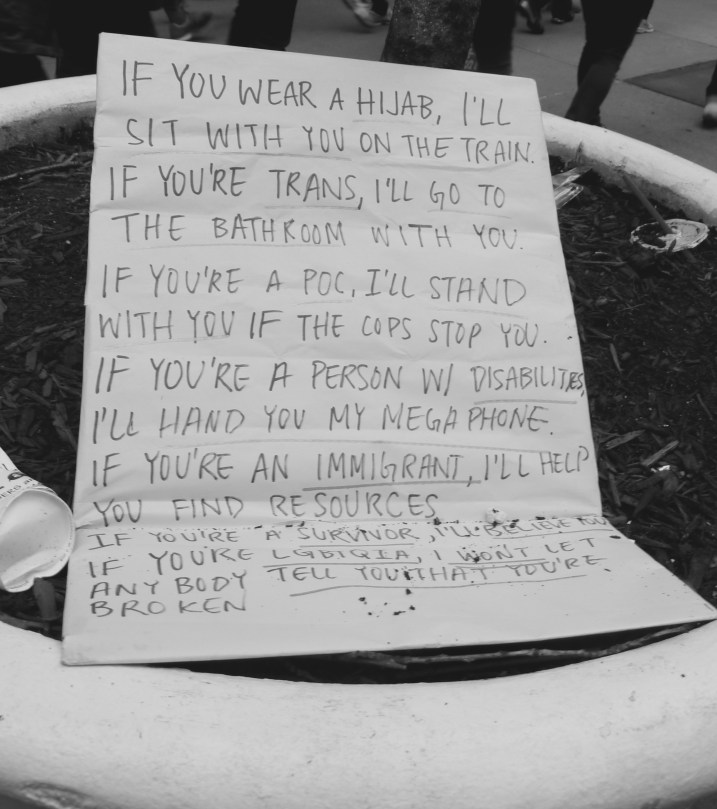 IF YOU WEAR A HIJAB, I'LL
SIT WITH YOU ON THE TRAIN.
IF YOU'RE TRANS, I'LL GO TO
THE BATHROOM WITH YOU.
IF YOU'RE A POC, I'LL STAND
WITH YOU IF THE COPS STOP YOU.
IF YOU'RE A PERSON W/ DISABILITIES,
I'LL HAND YOU MY MEGAPHONE.
IF YOU'RE AN IMMIGRANT, I'LL HELP
YOU FIND RESOURCES
IF YOU'RE A SURVIVOR, I'LL BELIEVE YOU
IF YOU'RE LGBTQIA, I WON'T LET
ANYBODY TELL YOU THAT YOU'RE
BROKEN